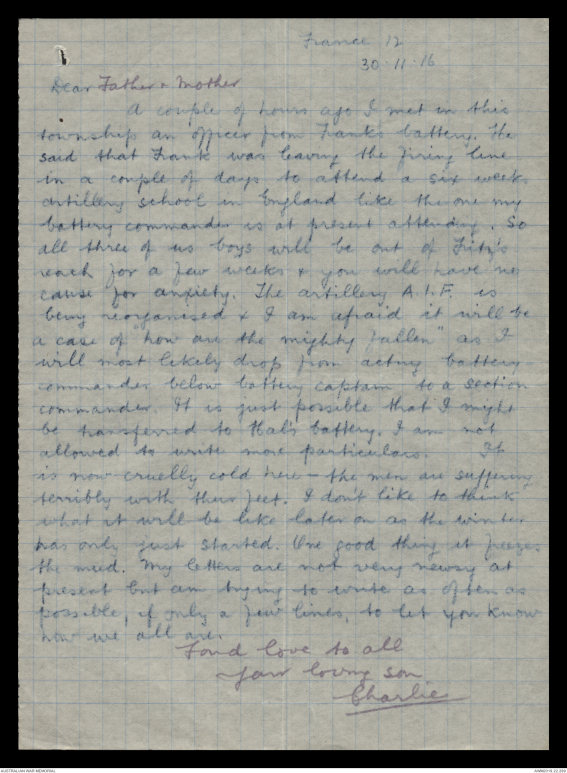 France 12
30.11.16
Dear Father & Mother
A couple of hours ago I met in this
township an officer from Frank's battery. He
said that Frank was leaving the firing line
in a couple of days to attend a six week
artillery school in England like the one my
battery commander is at present attending. So
all three of us boys will be out of Fritz's
reach for a few weeks & you will have no
cause for anxiety. The artillery A.I.F. is
being reorganised & I am afraid it will be
a case of "how are the mighty fallen" as I
will most likely drop from acting battery
commander below battery captain to a section
commander. It is just possible that I might
be transferred to Hal's battery. I am not
allowed to write more particulars. It
is now cruelly cold here - the men are suffering
terribly with their feet. I don't like to think
what it will be like later on as the winter
has only just started. One good thing it freezes
the mud. My letters are not very newsy at
present but am trying to write as often as
possible, if only a few lines, to let you know
how we all are.
Fond love to all
Your loving son
Charlie
AUSTRALIAN WAR MEMORIAL